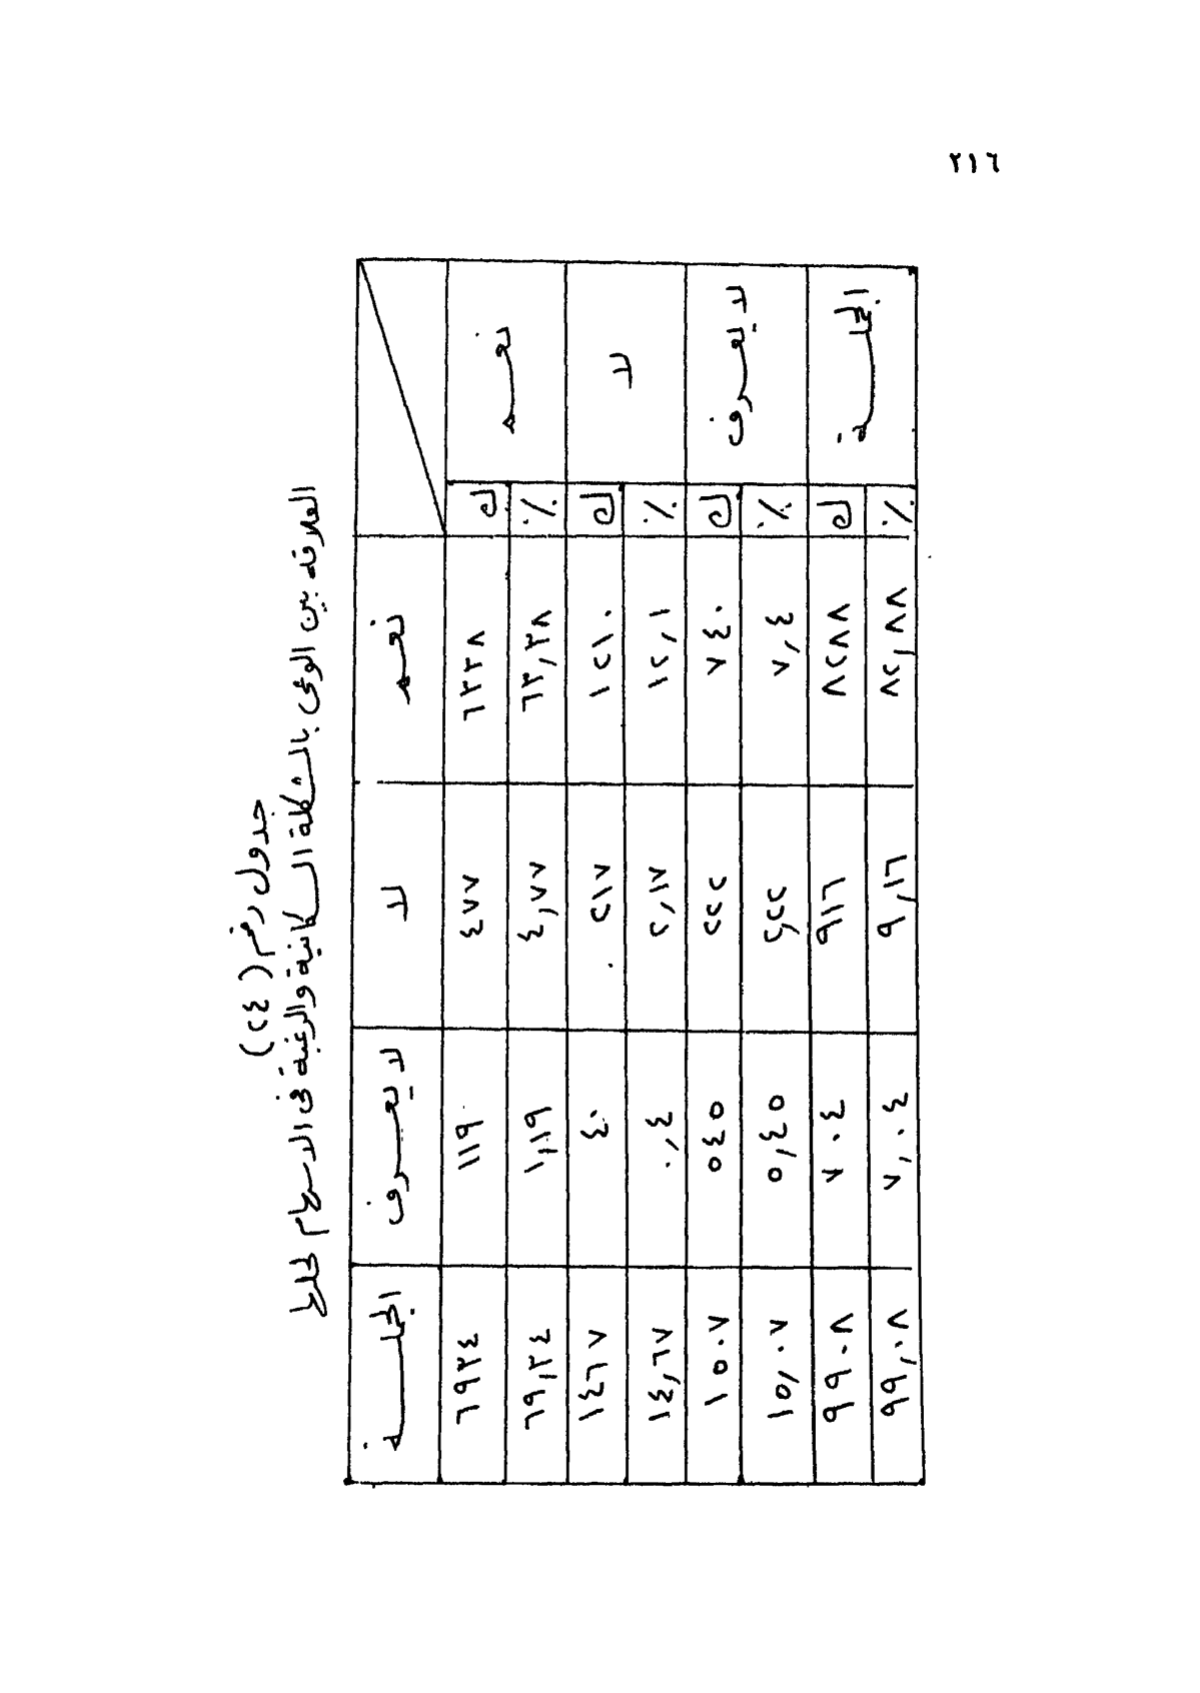 ٢١٦
جدول رقم (٢٤)
العلاقه بين الوعى بالمشكلة السكانية والرغبة فى الاسهام لحلها
نعم لا لا يعرف الجملة
نعم ك ٦٣٣٨ ٤٧٧ ١١٩ ٦٩٣٤
٪ ٦٣,٣٨ ٤,٧٧ ١,١٩ ٦٩,٣٤
لا ك ١٢١٠ ٢١٧ ٤٠ ١٤٦٧
٪ ١٢,١ ٢,١٧ ٠,٤ ١٤,٦٧
لا يعرف ك ٧٤٠ ٢٢٢ ٥٤٥ ١٥٠٧
٪ ٧,٤ ٢,٢٢ ٥,٤٥ ١٥,٠٧
الجملة ك ٨٢٨٨ ٩١٦ ٧٠٤ ٩٩٠٨
٪ ٨٢,٨٨ ٩,١٦ ٧,٠٤ ٩٩,٠٨